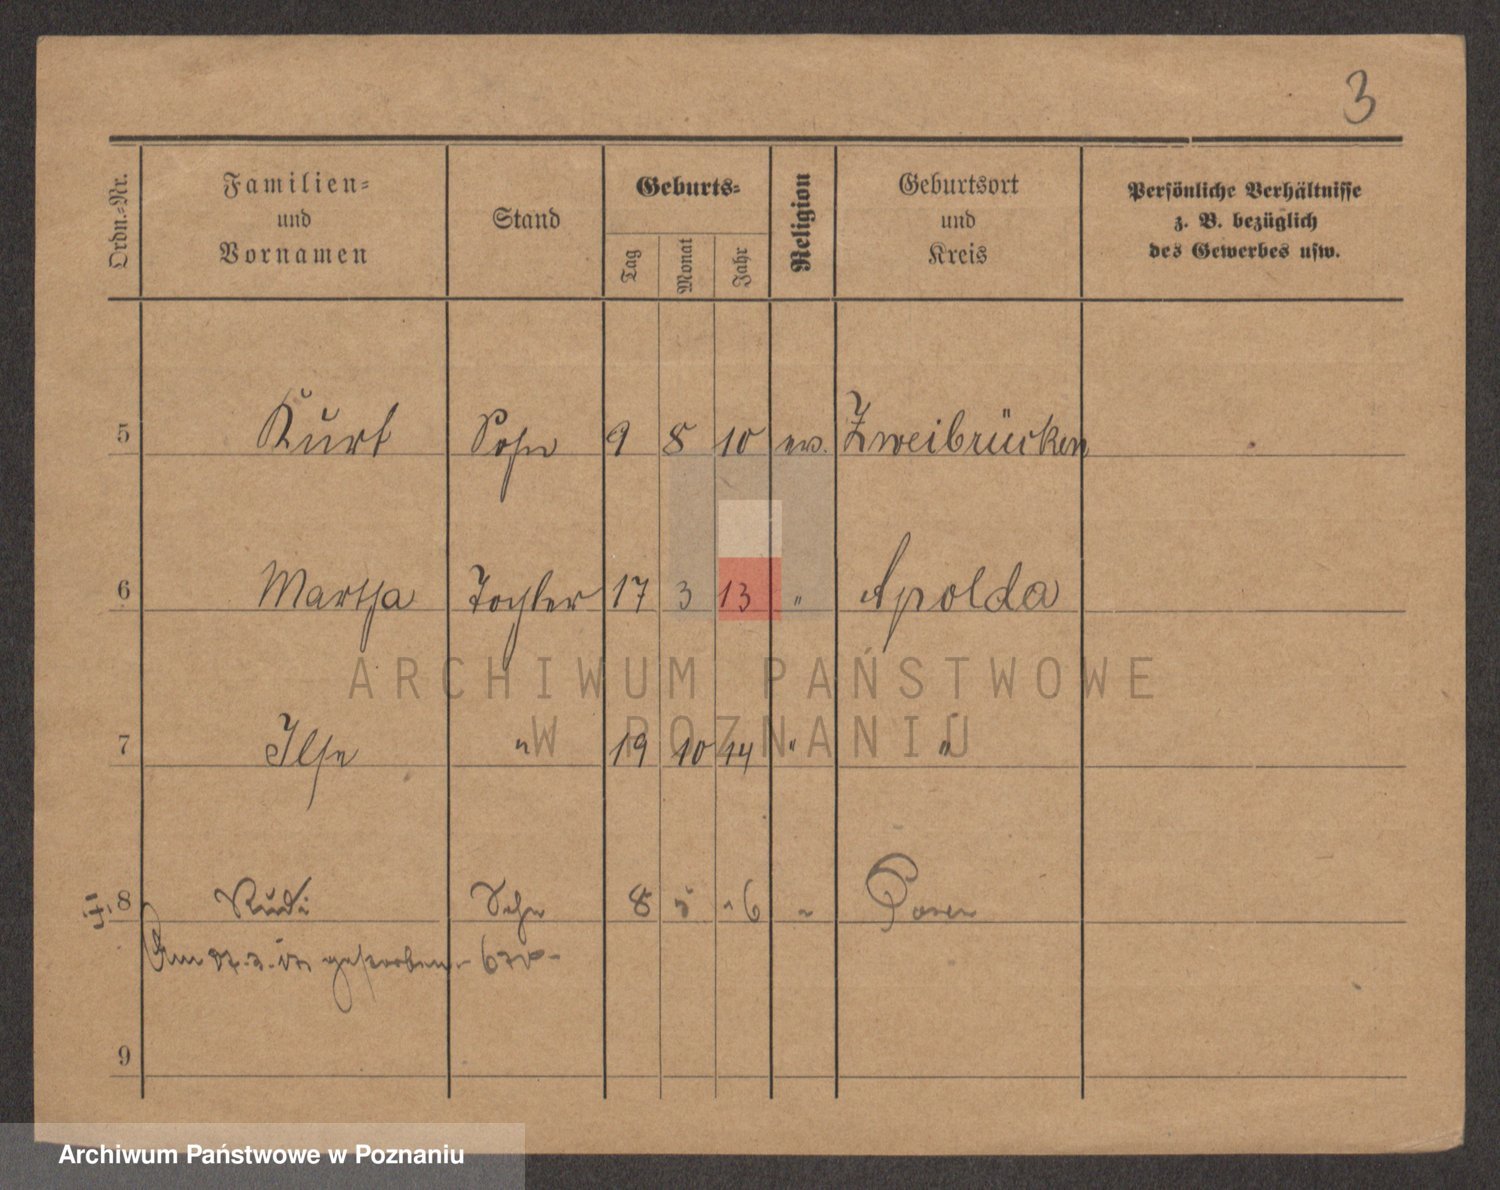 3
Ordn.=Nr.
Familien=
und
Vornamen
Stand
Geburts=
Tag
Monat
Jahr
Religion
Geburtsort
und
Kreis
Persönliche Verhältnisse
z. B. bezüglich
des Gewerbes usw.
5 Kurt Sohn 9 8 10 ev. Zweibrücken
6 Martha Tochter 17 3 13 " Apolda
ARCHIWUM PAŃSTWOWE
W POZNANIU
7 Ilse " 19 10 14 " "
8 Rudi Sohn 8 5 6 " Posen
Am gestorben
9
Archiwum Państwowe w Poznaniu